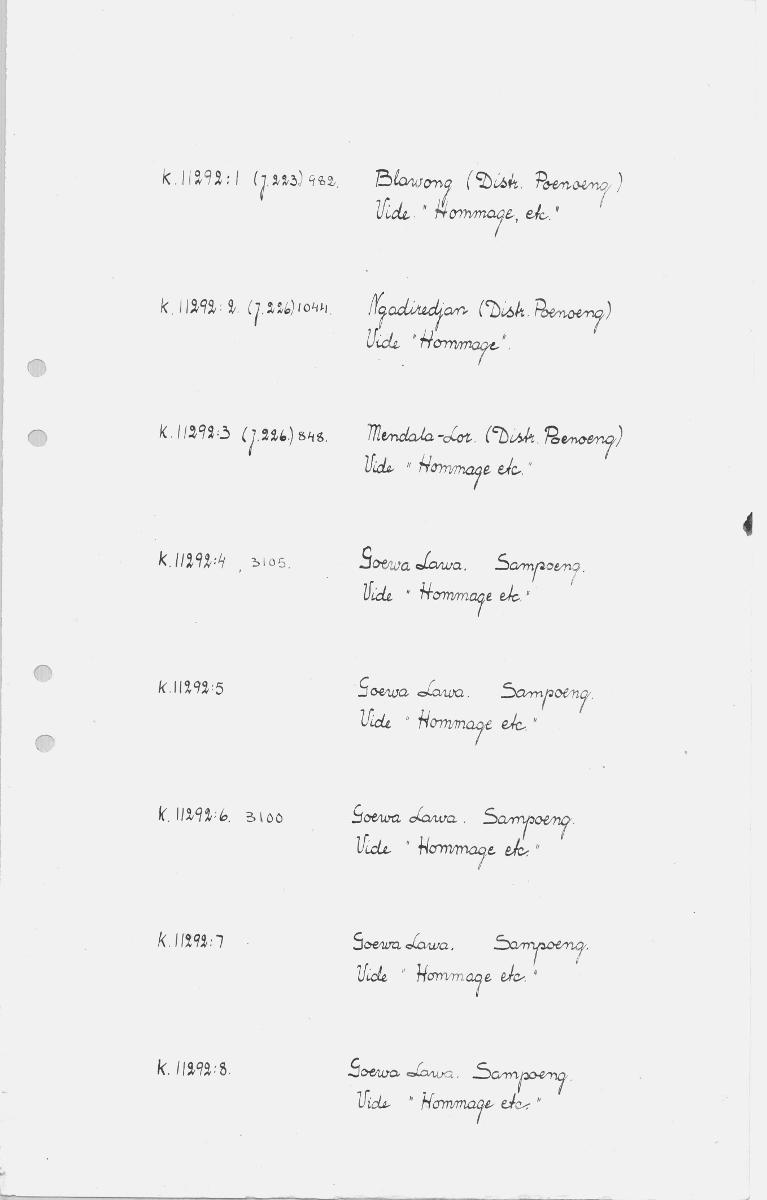 K.11292:1 (J.223) 982. Blawong (Distr. Poenoeng)
Vide "Hommage, etc."
K.11292:2. (J.226) 1044. Ngadiredjan (Distr. Poenoeng)
Vide "Hommage".
K.11292:3 (J.226.) 848. Mendala-Lor. (Distr. Poenoeng)
Vide "Hommage etc."
K.11292:4, 3105. Goewa Lawa. Sampoeng.
Vide "Hommage etc."
K.11292:5 Goewa Lawa. Sampoeng.
Vide "Hommage etc."
K.11292:6. 3100 Goewa Lawa. Sampoeng.
Vide "Hommage etc."
K.11292:7 Goewa Lawa. Sampoeng.
Vide "Hommage etc."
K.11292:8. Goewa Lawa. Sampoeng.
Vide "Hommage etc."